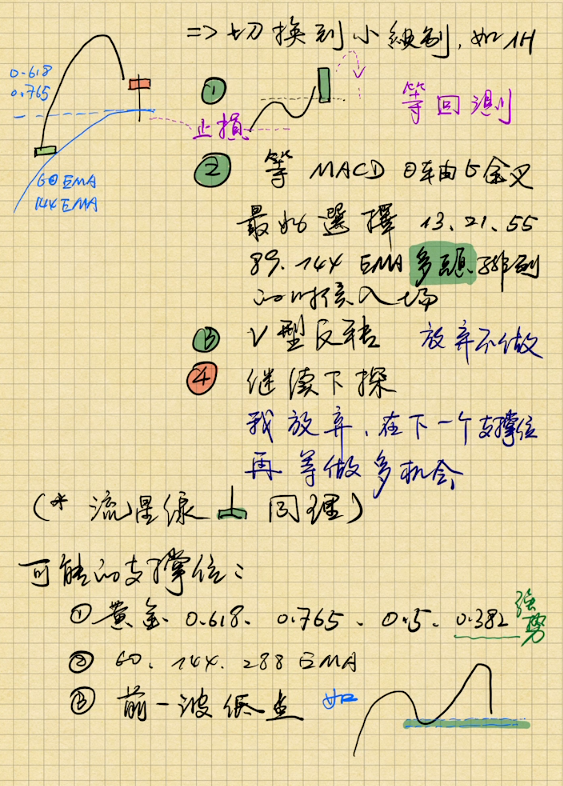 => 切换到小级别，如1H
0.618
0.765
① 等回测
止損
60 EMA
144 EMA
② 等 MACD 0轴由与金叉
最好選擇 13.21.55
89.144 EMA 多頭排列
的时候入场
③ V型反转 放弃不做
④ 继续下探
我放弃，在下一个支撑位
再等做多机会
(* 流星線 同理)
可能的支撐位：
① 黄金 0.618、0.765、0.5、0.382 强势
② 60、144、288 EMA
③ 前一波低点 如